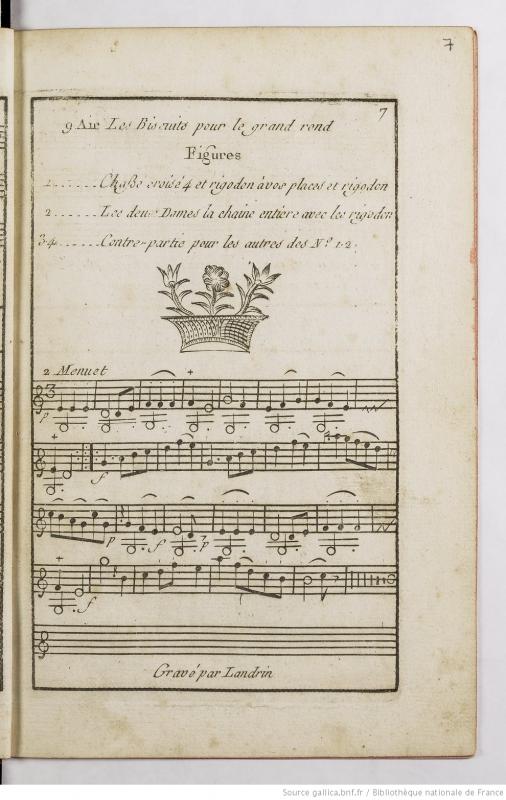 7
7
9 Air Les Biscuits pour le grand rond
Figures
1 ...... Chaßé croisé 4 et rigodon à vos places et rigodon
2 ...... Les deux Dames la chaine entiere avec les rigodon
3·4 ...... Contre-partie pour les autres des N.º 1·2·
2 Menuet
3
p
f
p f p
f
Gravé par Landrin
Source gallica.bnf.fr / Bibliothèque nationale de France